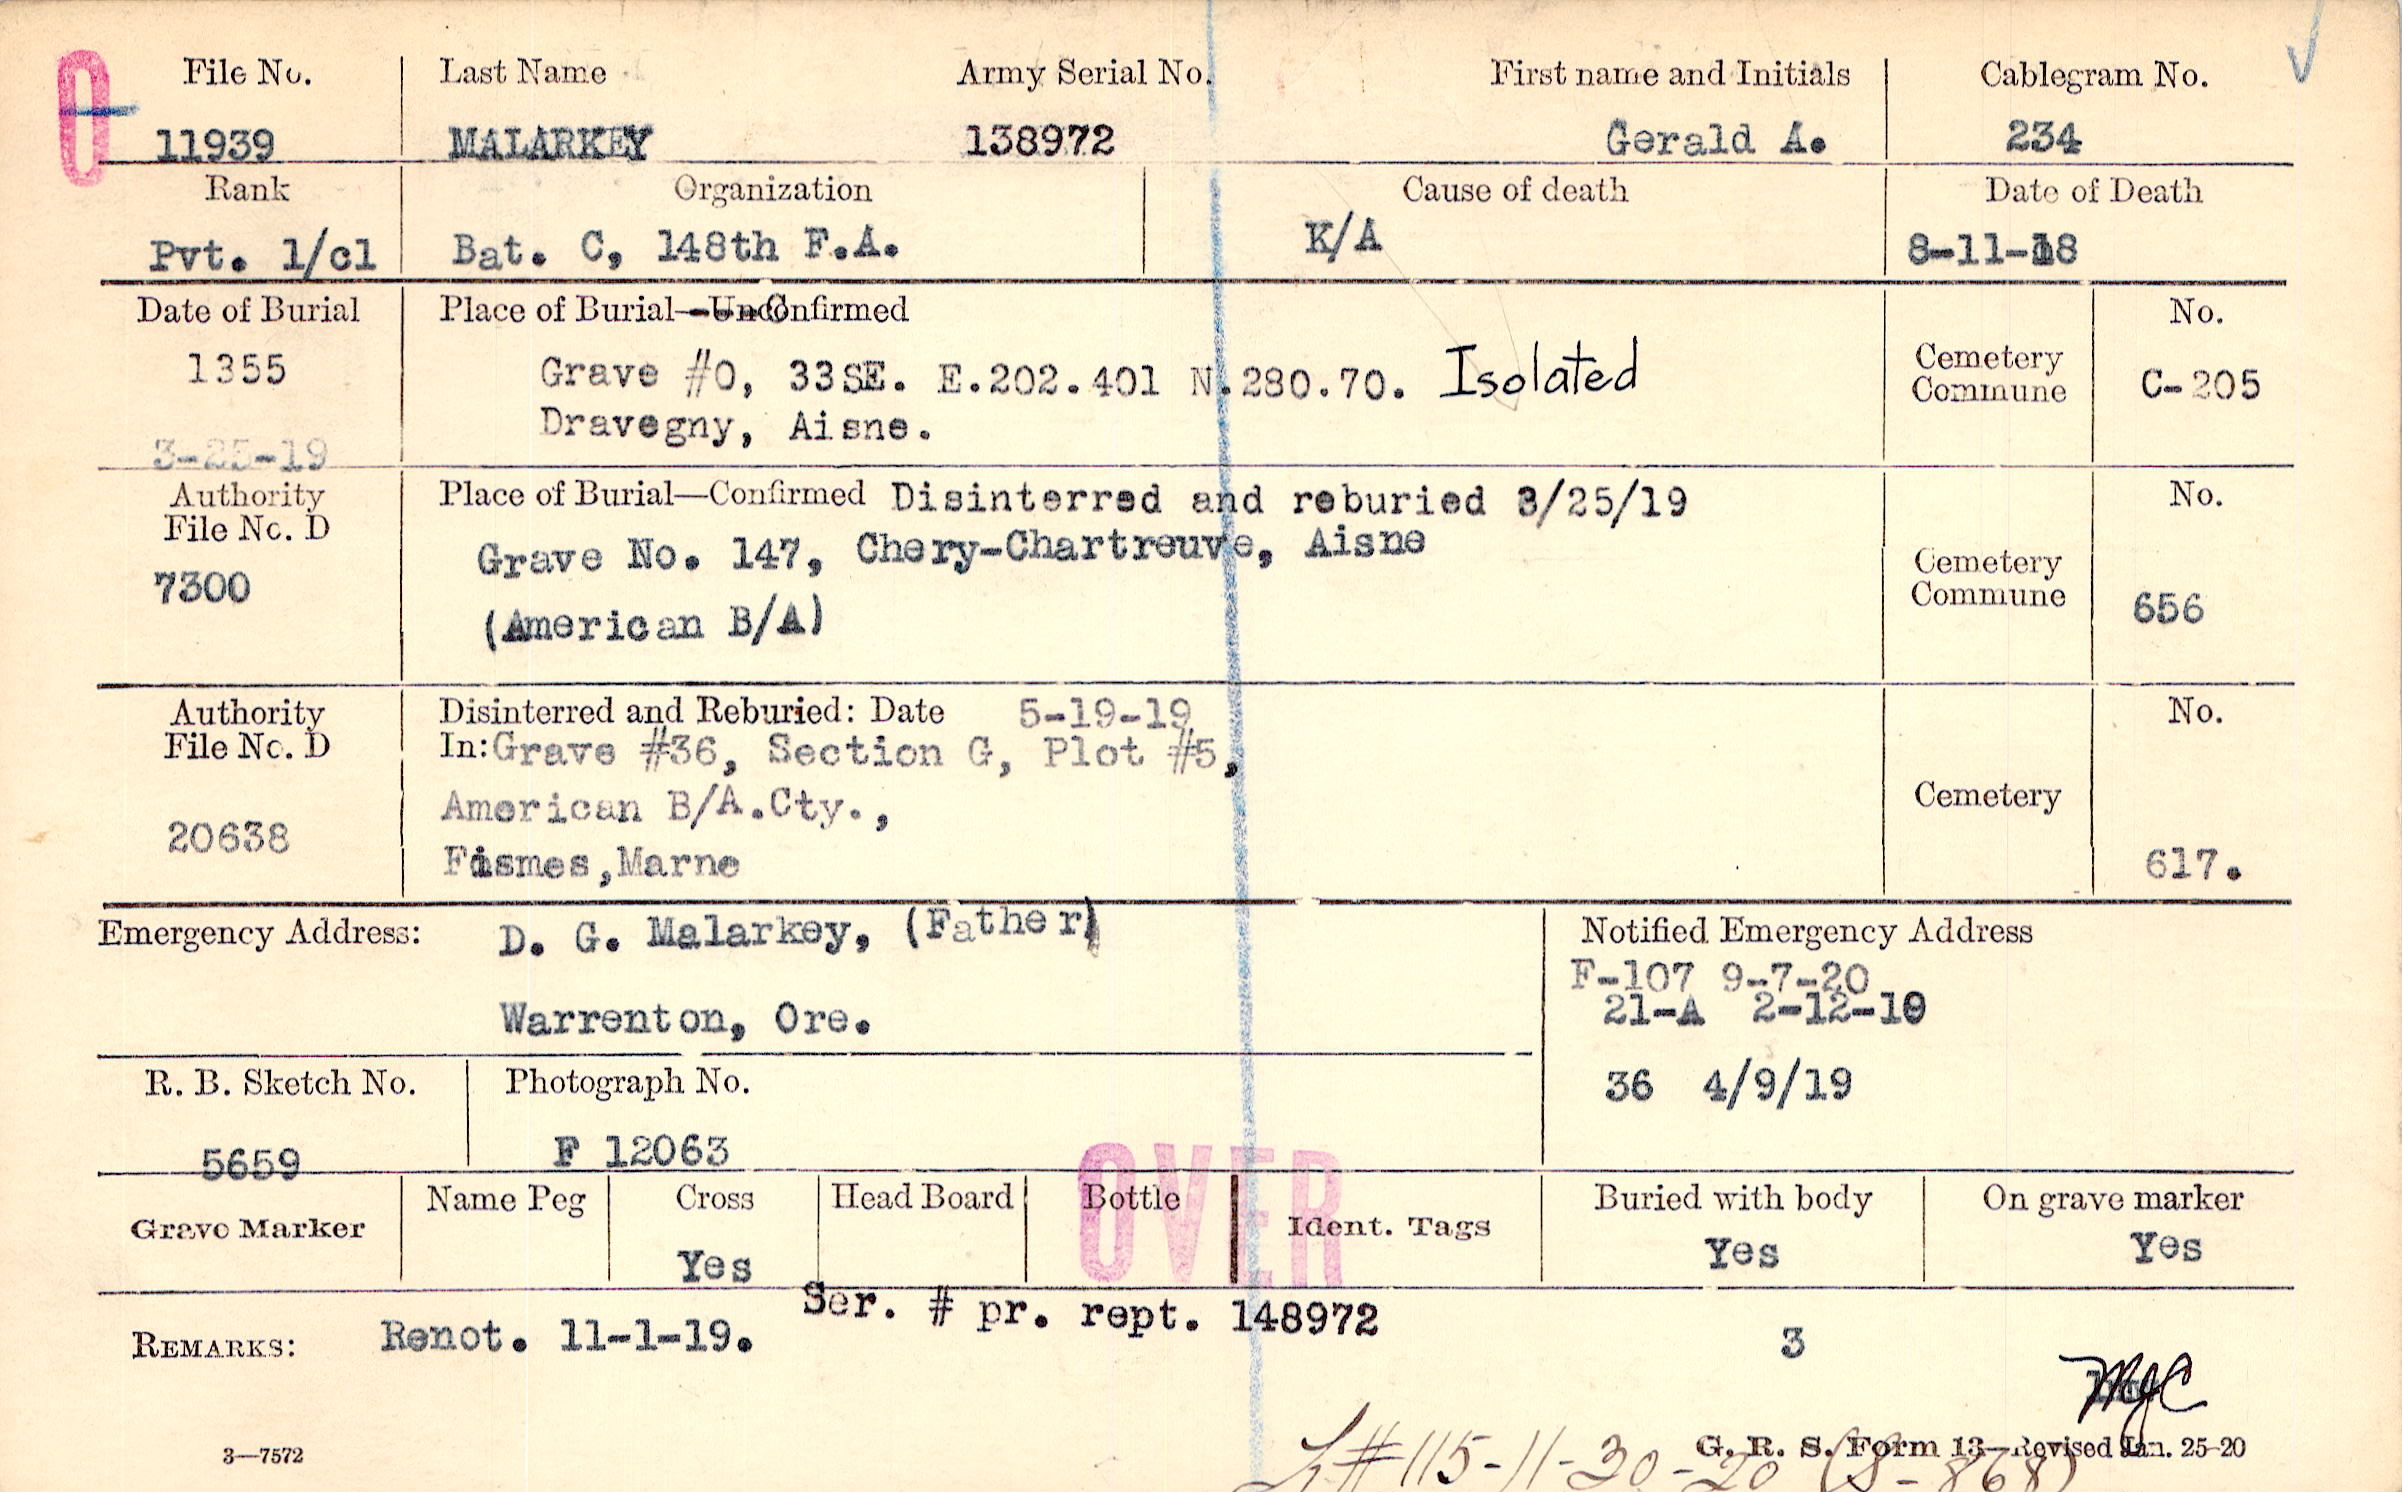 O
File No. Last Name Army Serial No. First name and Initials Cablegram No.
11939 MALARKEY 138972 Gerald A. 234
Rank Organization Cause of death Date of Death
Pvt. 1/cl Bat. C, 148th F.A. K/A 8-11-18
Date of Burial Place of Burial—Unconfirmed No.
1355 Grave #0, 33SE. E.202.401 N.280.70. Isolated Cemetery
Commune C-205
Dravegny, Aisne.
3-25-19
Authority Place of Burial—Confirmed Disinterred and reburied 3/25/19 No.
File No. D Grave No. 147, Chery-Chartreuve, Aisne Cemetery
7300 Commune 656
(American B/A)
Authority Disinterred and Reburied: Date 5-19-19 No.
File No. D In: Grave #36, Section G, Plot #5,
American B/A.Cty., Cemetery
20638
Fismes,Marne 617.
Emergency Address: D. G. Malarkey, (Father) Notified Emergency Address
F-107 9-7-20
Warrenton, Ore. 21-A 2-12-19
R. B. Sketch No. Photograph No. 36 4/9/19
5659 F 12063
OVER
Grave Marker Name Peg Cross Head Board Bottle Ident. Tags Buried with body On grave marker
Yes Yes Yes
Ser. # pr. rept. 148972
REMARKS: Renot. 11-1-19. 3
MJC
3—7572 G. R. S. Form 13—Revised Jan. 25-20
#115-11-30-20 (S-868)